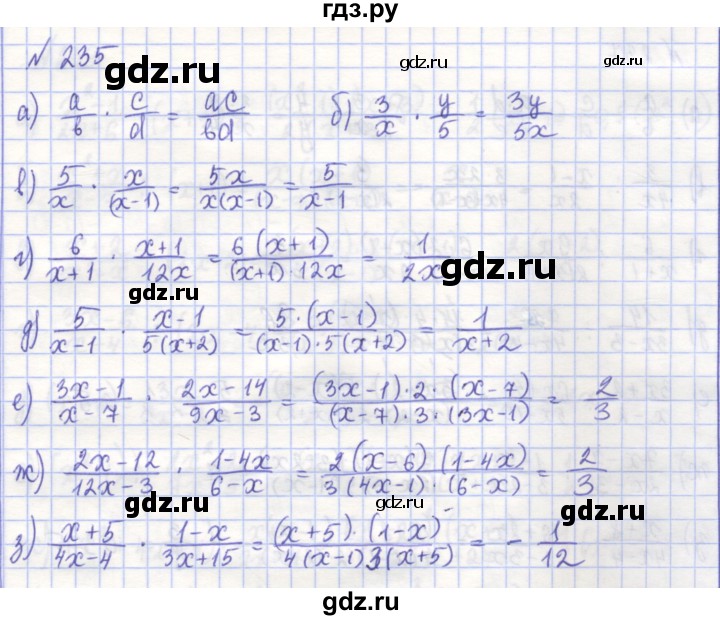 гдз.ру
№ 235
gdz.ru gdz.ru
а) a/b · c/d = ac/bd б) 3/x · y/5 = 3y/5x
в) 5/x · x/(x-1) = 5x/x(x-1) = 5/x-1
г) 6/x+1 · x+1/12x = 6(x+1)/(x+1)·12x = 1/2x
gdz.ru gdz.ru
д) 5/x-1 · x-1/5(x+2) = 5·(x-1)/(x-1)·5(x+2) = 1/x+2
е) 3x-1/x-7 · 2x-14/9x-3 = (3x-1)·2·(x-7)/(x-7)·3·(3x-1) = 2/3
ж) 2x-12/12x-3 · 1-4x/6-x = 2(x-6)(1-4x)/3(4x-1)·(6-x) = 2/3
gdz.ru gdz.ru
з) x+5/4x-4 · 1-x/3x+15 = (x+5)·(1-x)⁻/4(x-1)3(x+5) = - 1/12
gdz.ru